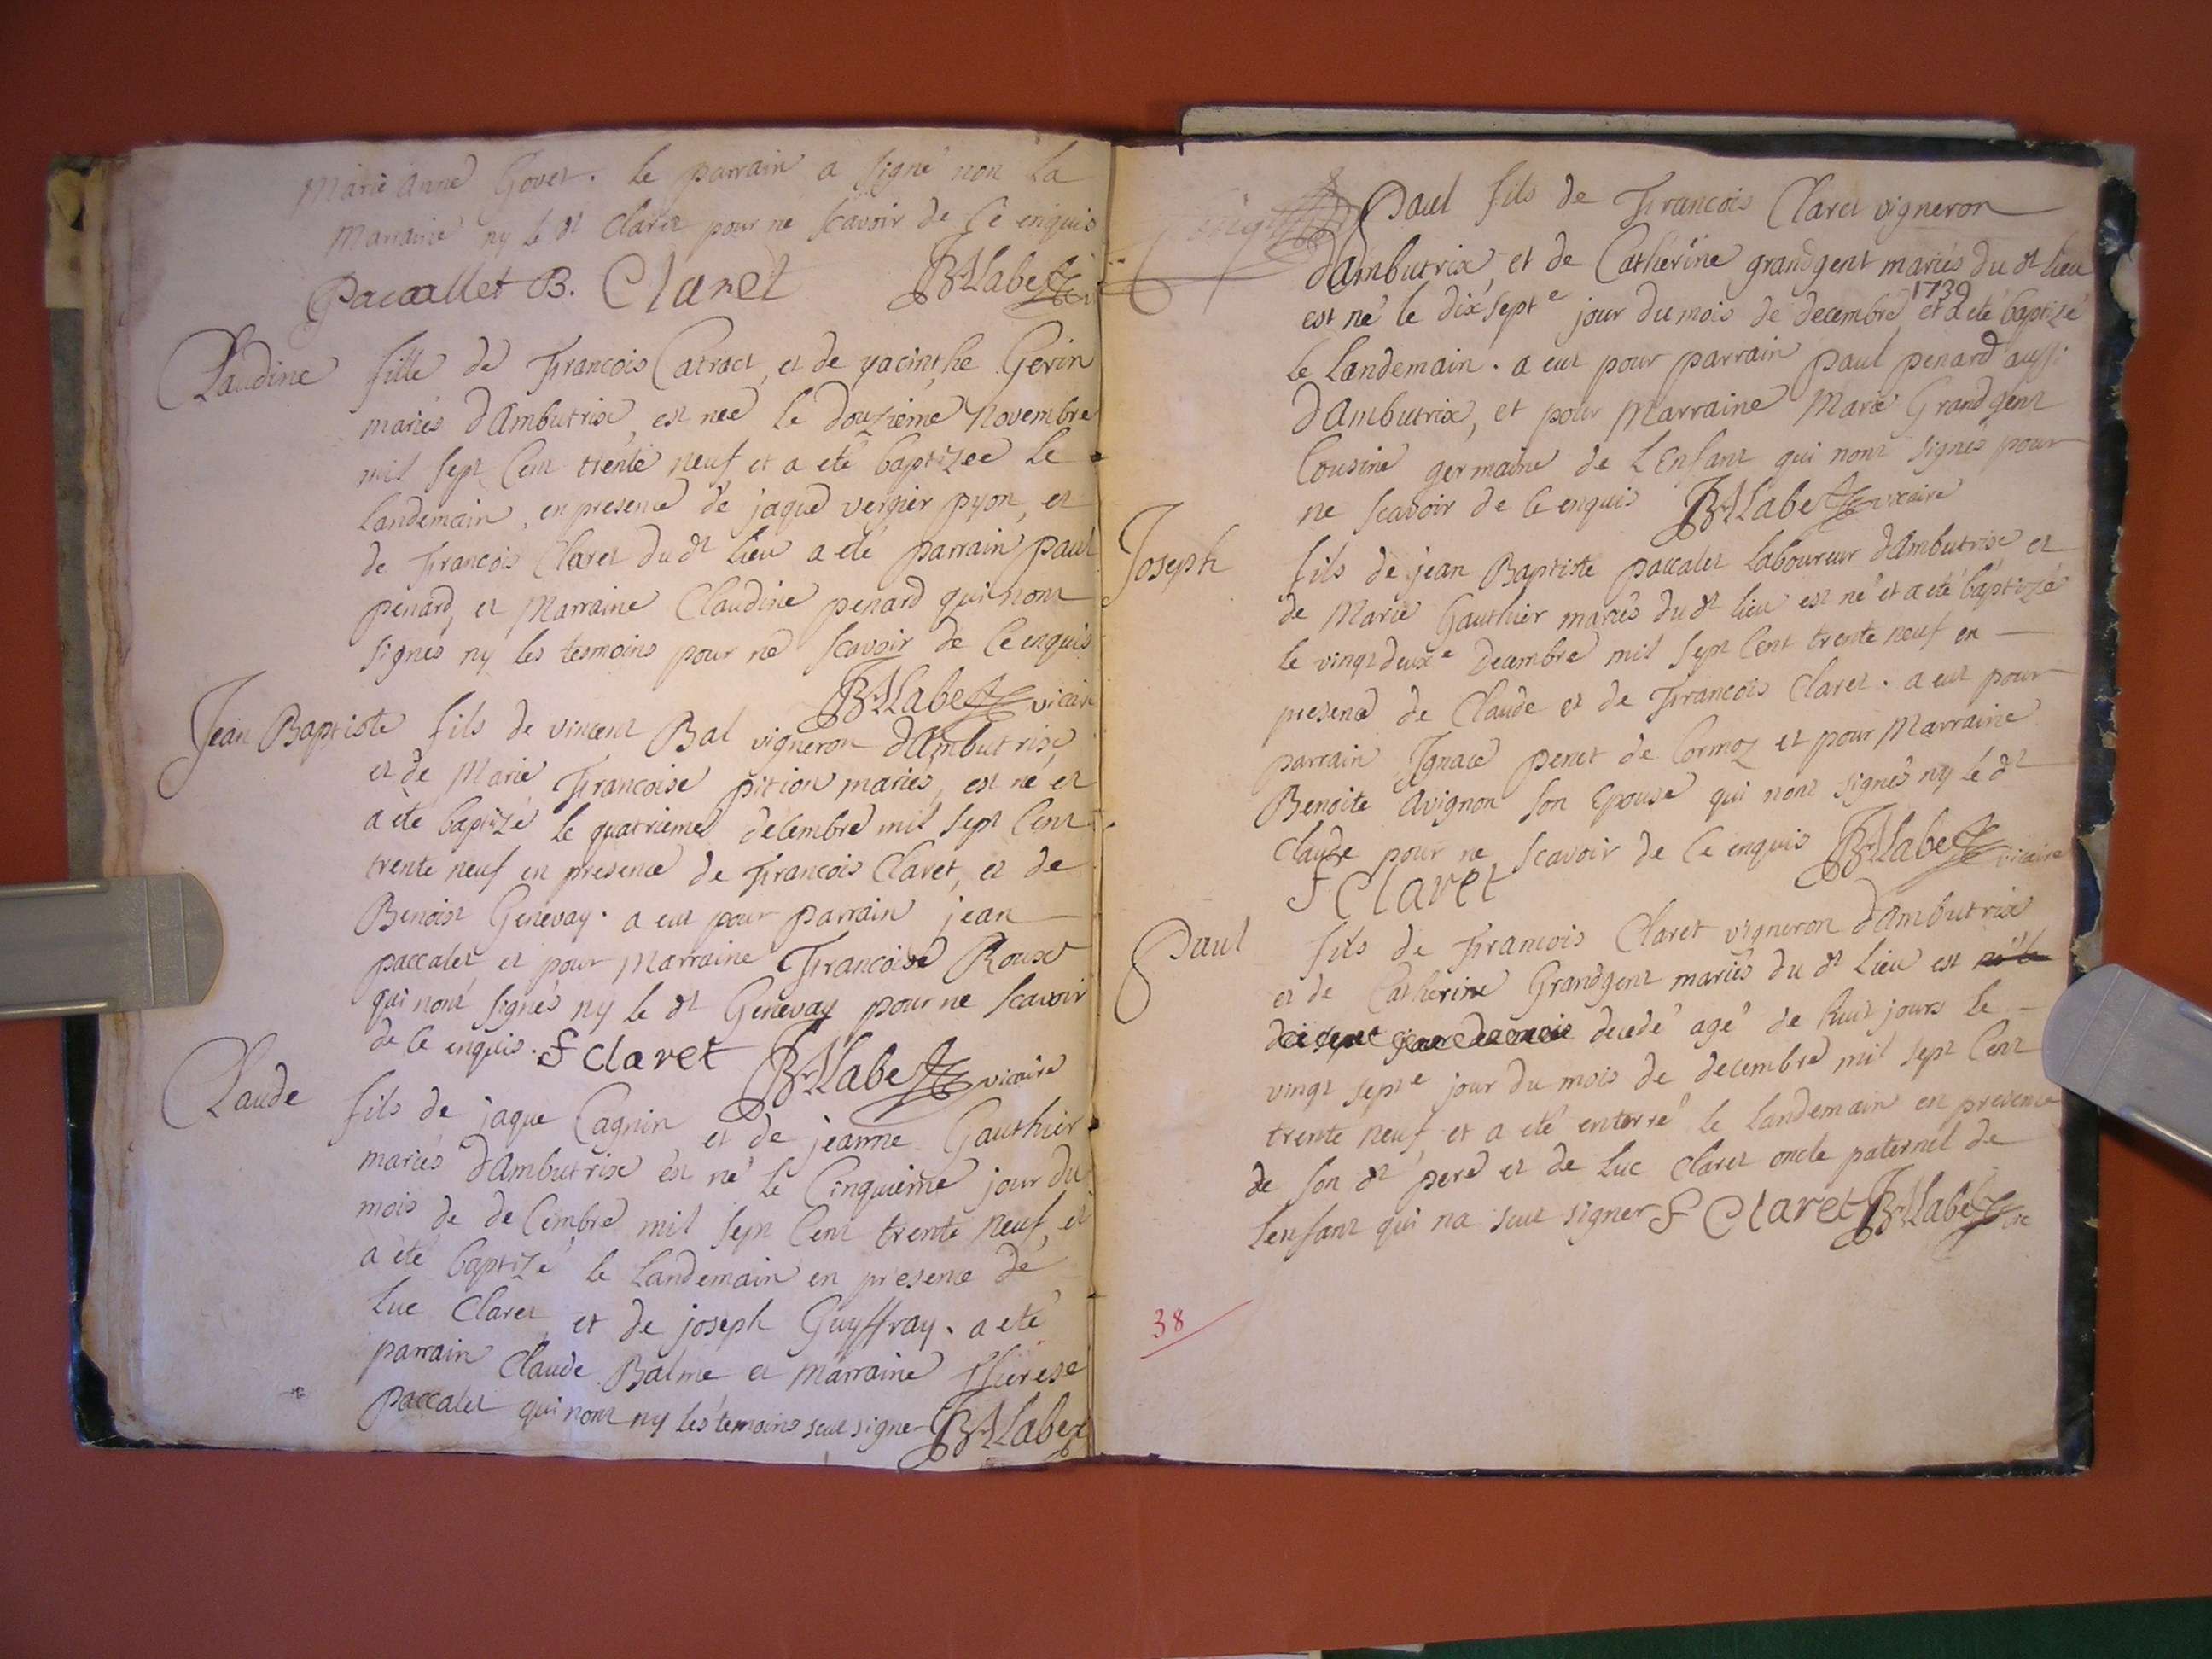 Marie Anne Govet. le parrain a signé non la
Marraine ny le dt Claret pour ne scavoir de ce enquis
Pacaallet B. Claret BALabe
Claudine fille de Francois Catract, et de yacinthe Gerin
mariés dAmbutrix, est née le douzieme Novembre
mil sept Cent trente neuf et a eté baptizée le
landemain, en presence de jaque vergier pyon, et
de Francois Claret du dt lieu a eté parrain paul
penard, et Marraine Claudine penard qui nont
signés ny les tesmoins pour ne scavoir de ce enquis
BALabe vicaire
Jean Baptiste fils de vincent Bal vigneron dAmbutrix,
et de Marie Francoise pition mariés, est né et
a eté baptizé le quatrieme decembre mil sept Cent
trente neuf en presence de Francois Claret, et de
Benoist Genevay. a eut pour parrain jean
paccalet et pour Marraine Francoise Roux
qui nont signés ny le dt Genevay pour ne scavoir
de ce enquis. f claret BALabe vicaire
Claude fils de jaque Cagnin et de jeanne Gauthier
mariés dAmbutrix est né le Cinquieme jour du
mois de decembre mil sept Cent trente neuf, et
a eté baptizé le landemain en presence de
Luc Claret et de joseph Guyffray. a eté
parrain Claude Balme et marraine thierese
paccalet qui nont ny les temoins scut signer BALabe
Paul fils de Francois Claret vigneron
dAmbutrix et de Catherine grandgent mariés du dt lieu
1739
est né le dix septe jour du mois de decembre et a eté baptizé
le landemain. a eut pour parrain paul penard aussi
dAmbutrix, et pour Marraine Marie Grandgent
Cousine germaine de LEnfant qui nont signés pour
ne scavoir de ce enquis BALabe vicaire
Joseph fils de jean Baptiste paccalet laboureur dAmbutrix et
de Marie Gauthier mariés du dt lieu est né et a eté baptizé
le vingt deuxe decembre mil sept Cent trente neuf en
presence de Claude et de Francois Claret. a eut pour
parrain Ignace penet de Cormoz et pour Marraine
Benoite Avignon son Epouse qui nont signés ny le dt
Claude pour ne scavoir de ce enquis BALabe vicaire
f Claret
Paul fils de Francois Claret vigneron dAmbutrix
et de Catherine Grandgent mariés du dt lieu est né le
decedé agé de huit jours le
vingt septe jour du mois de decembre mil sept Cent
trente neuf et a eté enterré le landemain en presence
de son dt pere et de Luc Claret oncle paternel de
lenfant qui na scut signer f Claret BALabe vic
38